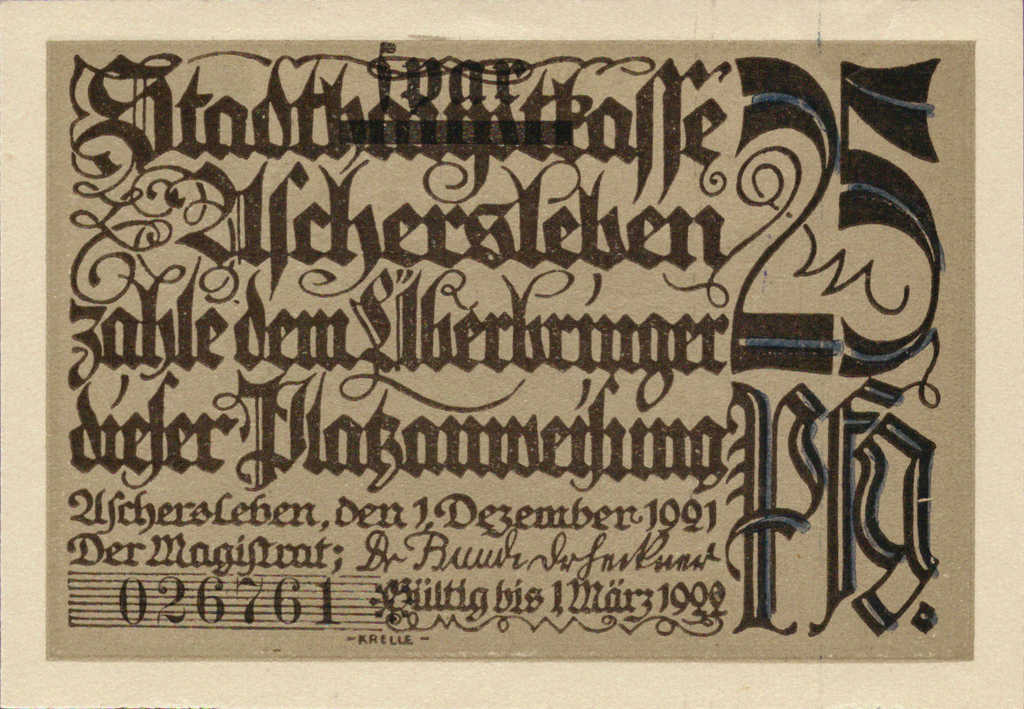 spar
Stadthauptkasse
Aschersleben
zahle dem Überbringer
dieser Platzanweisung
25
Pfg.
Aschersleben, den 1. Dezember 1921
Der Magistrat;
026761 Gültig bis 1 März 1922
-KRELLE-